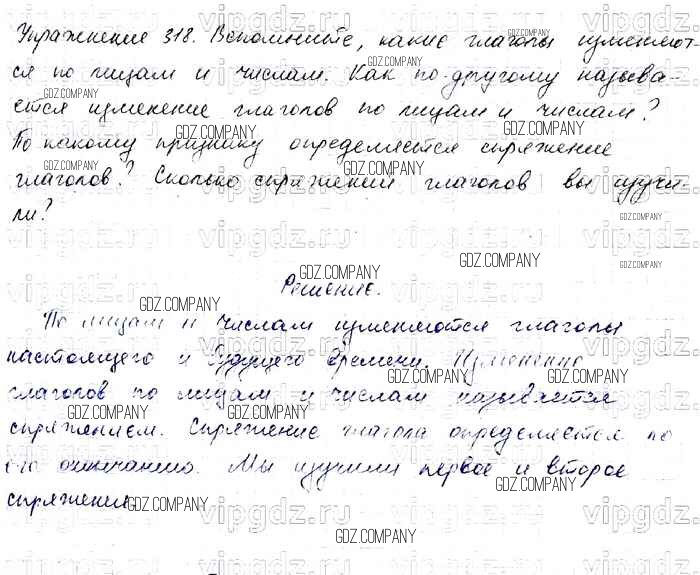 Упражнение 318. Вспомните, какие глаголы изменяют-
ся по лицам и числам. Как по-другому называ-
ется изменение глаголов по лицам и числам?
По какому признаку определяется спряжение
глаголов? Сколько спряжений глаголов вы изучи-
ли?
Решение.
По лицам и числам изменяются глаголы
настоящего и будущего времени. Изменение
глаголов по лицам и числам называется
спряжением. Спряжение глагола определяется по
его окончанию. Мы изучили первое и второе
спряжения.